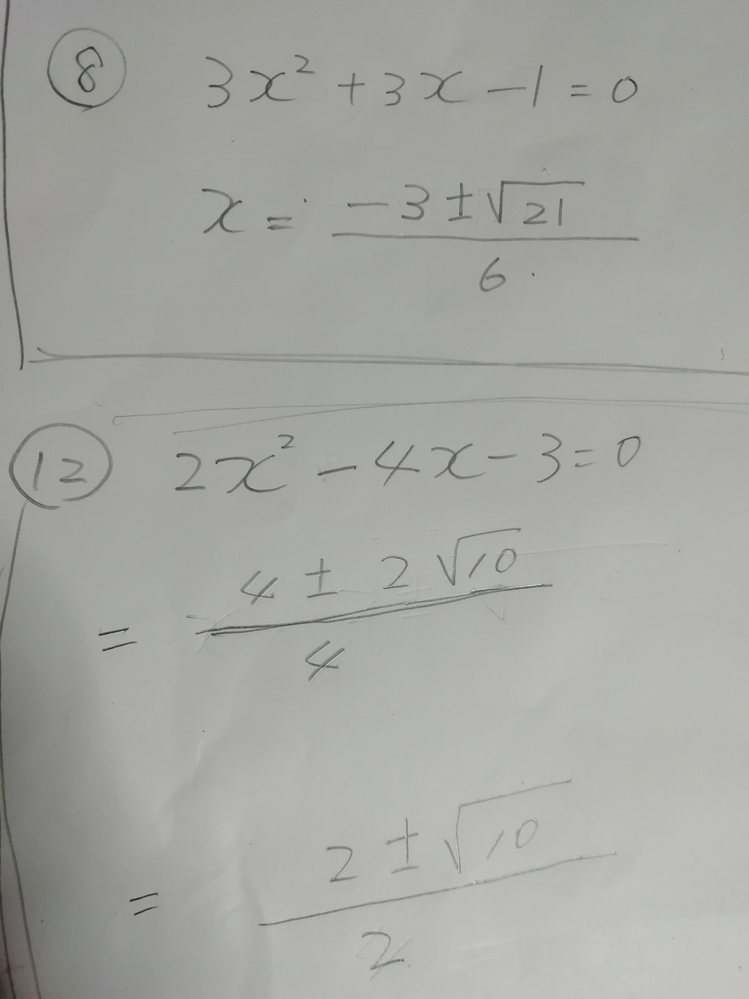 ⑧ 3x² + 3x - 1 = 0
x = (-3 ± √21) / 6
⑫ 2x² - 4x - 3 = 0
= (4 ± 2√10) / 4
= (2 ± √10) / 2